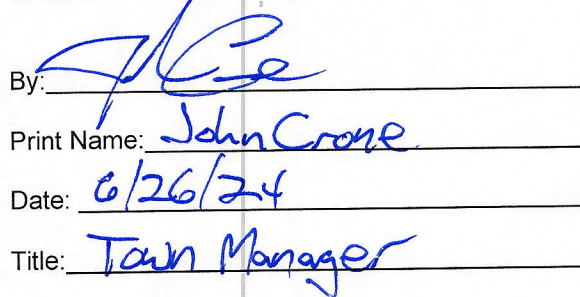 By:
Print Name: John Crone
Date: 6/26/24
Title: Town Manager